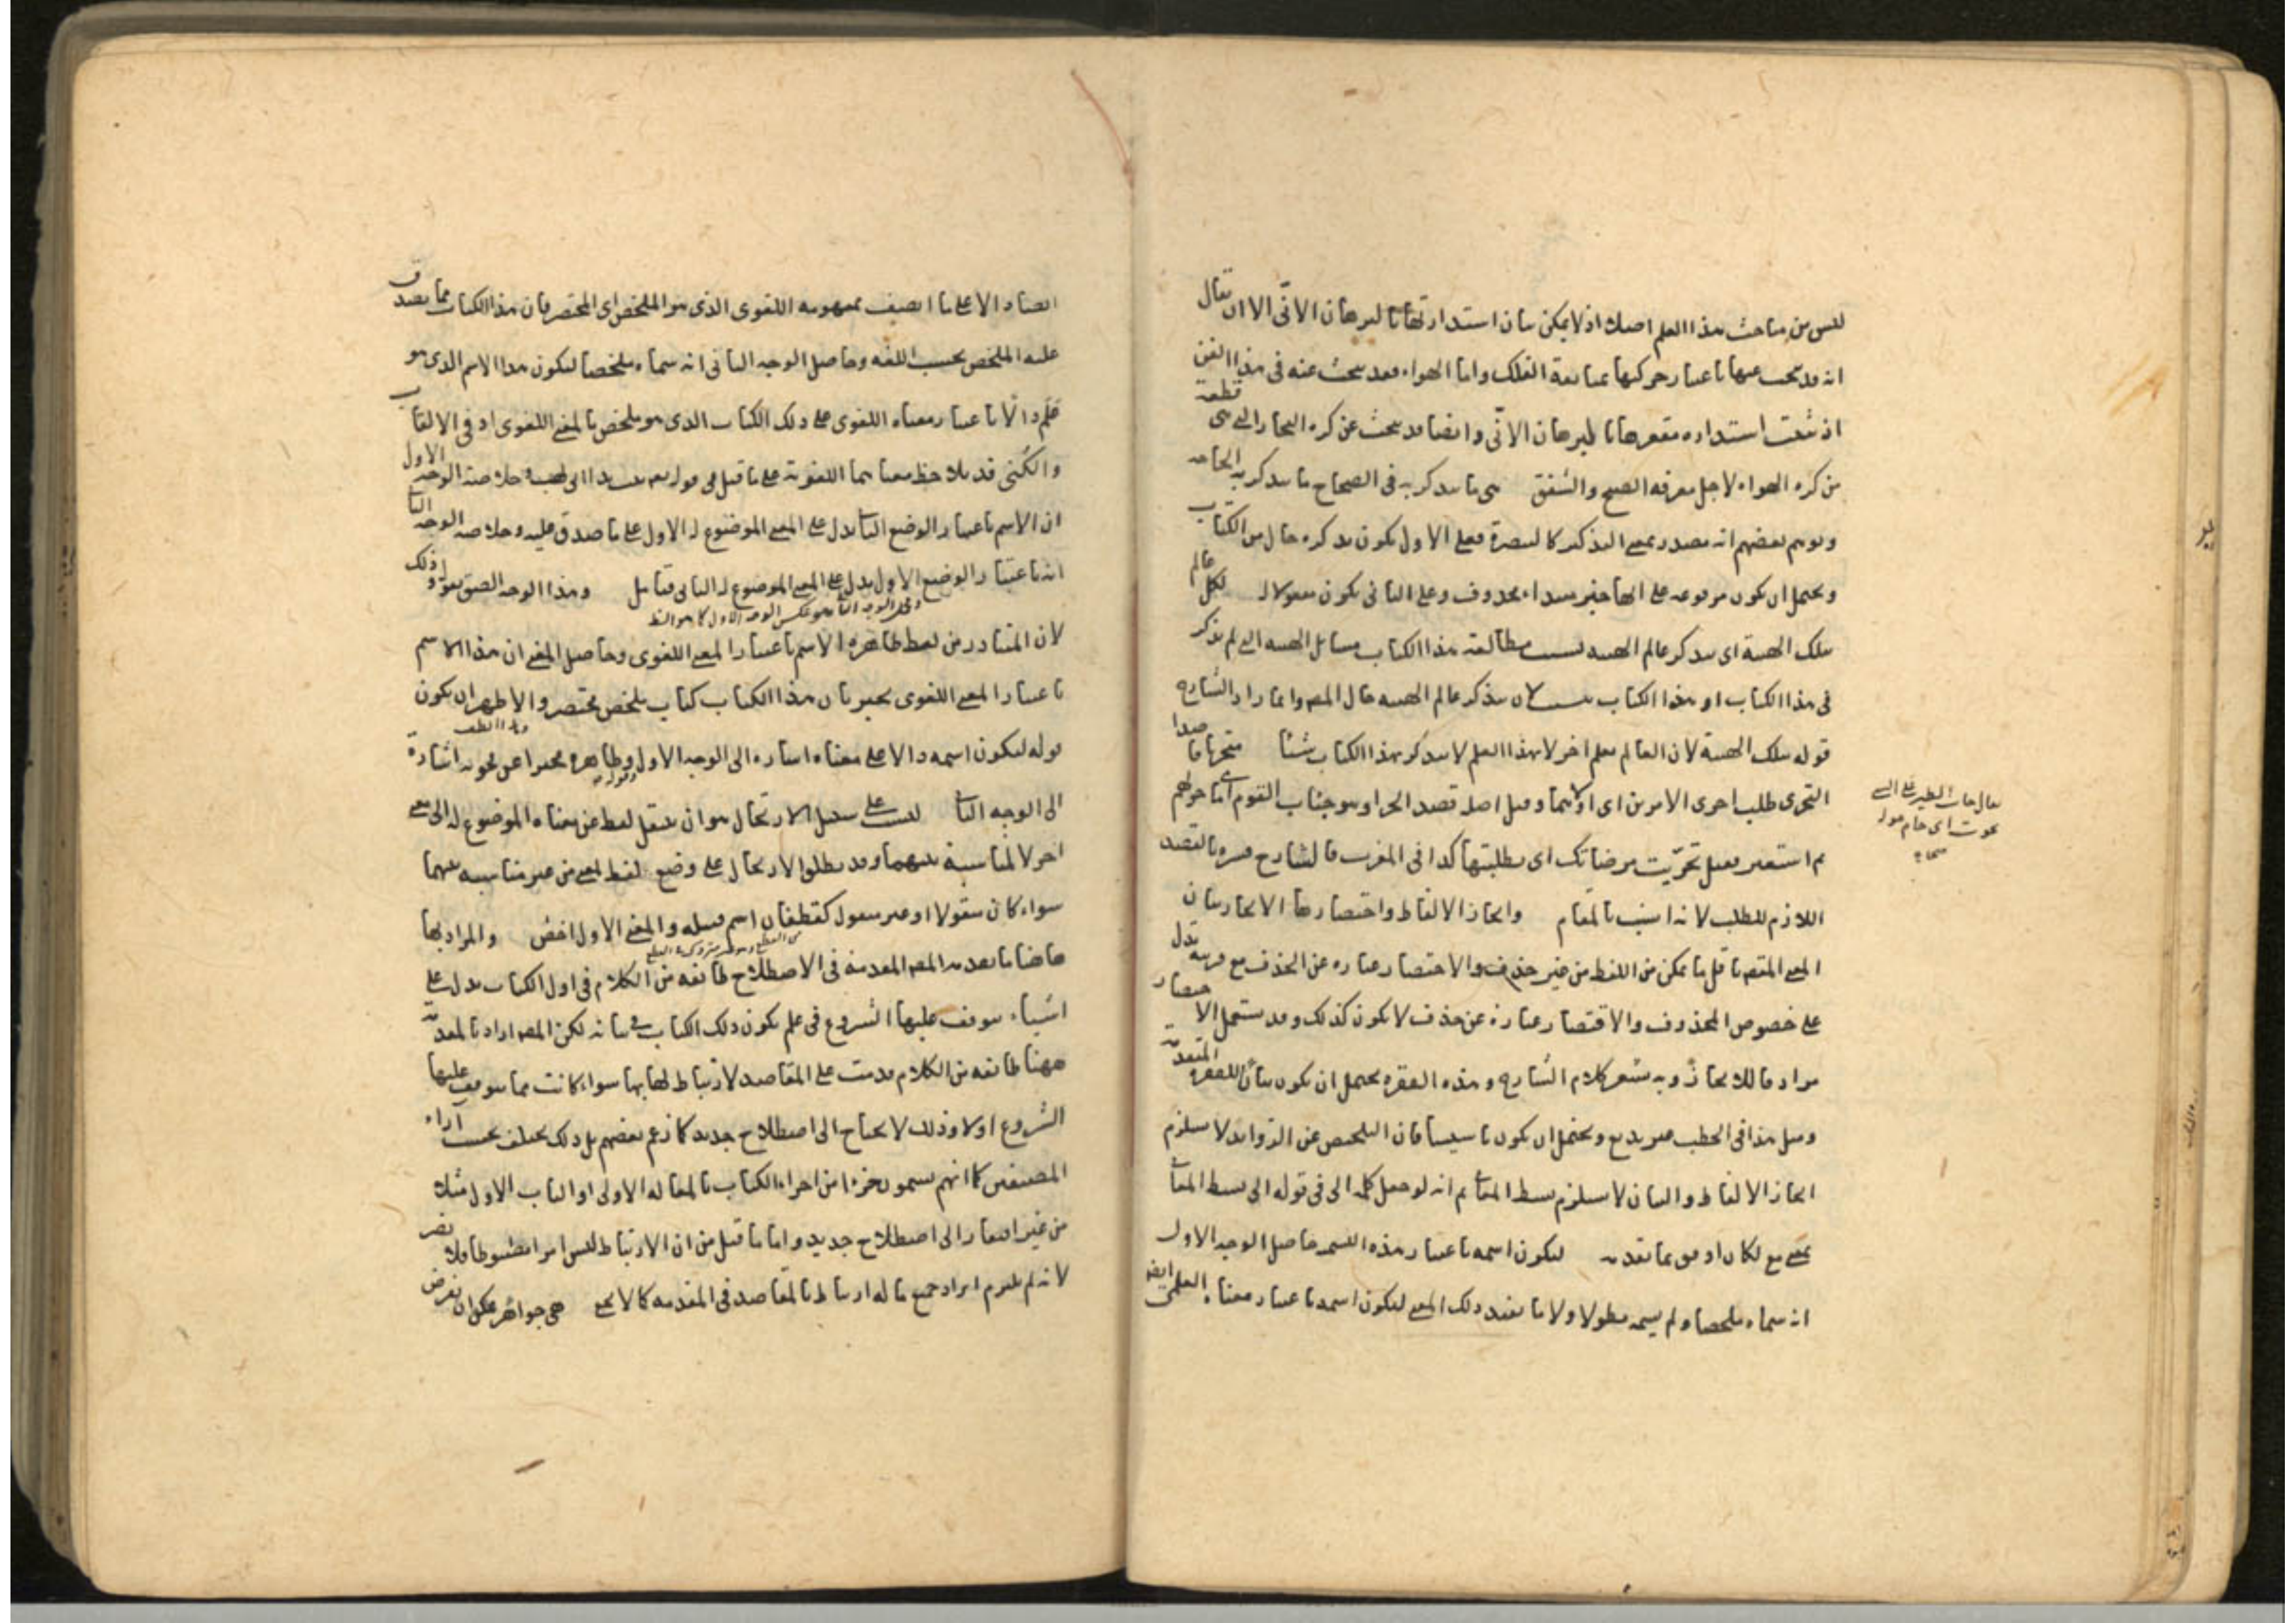 ليس من مباحث هذا العلم اصلا اذ لا يمكن بيان استدارتها بالبرهان الانّى الا ان يقال
انه قد يبحث عنها باعتبار حركتها بمتابعة الفلك واما الهواء فقد يبحث عنه فى هذا الفن
اذ ثبتت استداره مقعرها بالبرهان الانّى وايضا قد يبحث عن كره البخار التى هى قطعة
من كره الهواء لاجل معرفه الصبح والشفق هى ما يتذكر به فى الصحاح ما يتذكر به الحاجه
وتوهم بعضهم انه مصدر بمعنى التذكير كالتبصرة فعلى الاول يكون تذكره حال من الكتاب
ويحتمل ان يكون مرفوعه على انها خبر مبتداء محذوف وعلى الثانى يكون مفعولا له لكل عالم
بتلك الهيئة اى يتذكر عالم الهيئه بسبب مطالعة هذا الكتاب مسائل الهيئه التى لم يذكر
فى هذا الكتاب او هذا الكتاب سبب لان يتذكر عالم الهيئه قال المصـ وانما زاد الشارح
قوله بتلك الهيئة لان العالم بعلم اخر لا بهذا العلم لا يتذكر بهذا الكتاب شيئا متحريا قاصدا
التحرى طلب احرى الامرين اى اولاهما وقيل اصله قصد الحرا وهو جناب القوم اى ما حولهم
ثم استعير فقيل تحرّيت مرضاتك اى طلبتها كذا فى المغرب فالشارح فسره بالقصد
اللازم للطلب لانه انسب بالمقام وايجاز الالفاظ واختصارها الايجاز بيان
المعنى المقصـ باقل ما يمكن من اللفظ من غير حذف والاختصار عباره عن الحذف مع قرينه تدل
على خصوص المحذوف والاقتصار عبارة عن حذف لا يكون كذلك وقد يستعمل الاختصار
مرادفا للايجاز وبه يشعر كلام الشارح وهذه الفقره يحتمل ان يكون بيانا للفقره المتقدمة
ومثل هذا فى الخطب غير بديع ويحتمل ان يكون تاسيسا فان التلخيص عن الزوايد لا يستلزم
ايجاز الالفاظ والبيان لا يستلزم بسط المعانى ثم انه لو جعل كلمة الى فى قوله الى بسط المعانى
بمعنى مع لكان اوفق بما تقدم ليكون اسمه باعتبار هذه التسميه حاصل الوجه الاول
انه سماه ملخصا ولم يسمه مطولا ولا ما يفيد ذلك المعنى ليكون اسمه باعتبار معناه العلمى ايضا
يقال حام الطير على الشى
يحوم اى حام حوله
صحاح
الصادا الا على ما اتصف بمفهومه اللغوى الذى هو الملخص اى المختصر فان هذا الكتاب مما يصدق
عليه الملخص بحسب اللغه وحاصل الوجه الثانى انه سماه ملخصا ليكون هذا الاسم الذى هو
عَلَم دالّا باعتبار معناه اللغوى على ذلك الكتاب الذى هو ملخص بالمعنى اللغوى اذ فى الالقاب
والكُنى قد يلاحظ معانيها اللغوية على ما قيل فى قوله تعـ تبت يدا ابى لهب وخلاصة الوجه الاول
ان الاسم باعتبار الوضع الثانى يدل على المعنى الموضوع له الاول على ما صدق عليه وخلاصه الوجه الثانى
انه باعتبار الوضع الاول يدل على المعنى الموضوع له الثانى فتامل وهذا الوجه الصق بقوله وذلك
لان المتبادر من لفظ ظاهره الاسم باعتبار المعنى اللغوى وحاصل المعنى ان هذا الاسم
باعتبار المعنى اللغوى يخبر بان هذا الكتاب كتاب ملخص مختصر والاظهر ان يكون
قوله ليكون اسمه دالا على معناه اشاره الى الوجه الاول وظاهره مخبرا عن فحواه اشارة
الى الوجه الثانى ليست على سبيل الارتجال هو ان ينقل لفظ عن معناه الموضوع له الى معنى
اخر لا لمناسبة بينهما وقد يطلق الارتجال على وضع لفظ لمعنى من غير مناسبه بينهما
سواء كان منقولا او غير منقول كقطفان اسم قبيله والمعنى الاول اخص والمراد بها
هاهنا ما يصدره المصـ المقدمة فى الاصطلاح طائفه من الكلام فى اول الكتاب يدل على
اشياء يتوقف عليها الشروع فى علم يكون ذلك الكتاب فى بيانه لكن المصـ اراد بالمقدمة
ههنا طائفه من الكلام قدمت على المقاصد لارتباط لها بها سواء كانت مما يتوقف عليها
الشروع اولا وذلك لا يحتاج الى اصطلاح جديد كما زعم بعضهم بل ذلك يختلف بحسب آراء
المصنفين كما انهم يسمون جزءا من اجزاء الكتاب بالمقاله الاولى او الباب الاول مثلا
من غير افتقار الى اصطلاح جديد واما ما قيل من ان الارتباط ليس امرا مضبوطا فلا يضر
لانه لم يلتزم ايراد جميع ما له ارتباط بالمقاصد فى المقدمه كما لا يخفى هى جواهر يمكن ان يفرض